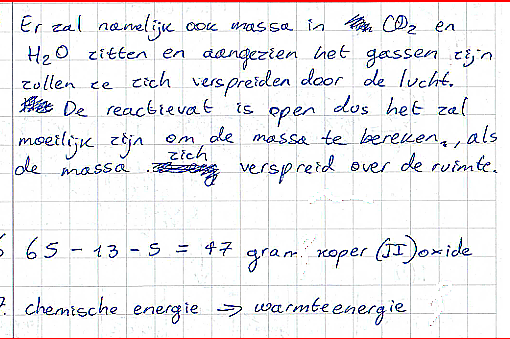 Er zal namelijk ook massa in CO2 en
H2O zitten en aangezien het gassen zijn
zullen ze zich verspreiden door de lucht.
De reactievat is open dus het zal
moeilijk zijn om de massa te bereken., als
de massa zich verspreid over de ruimte.
6 65 - 13 - 5 = 47 gram koper (II)oxide
7. chemische energie => warmteenergie